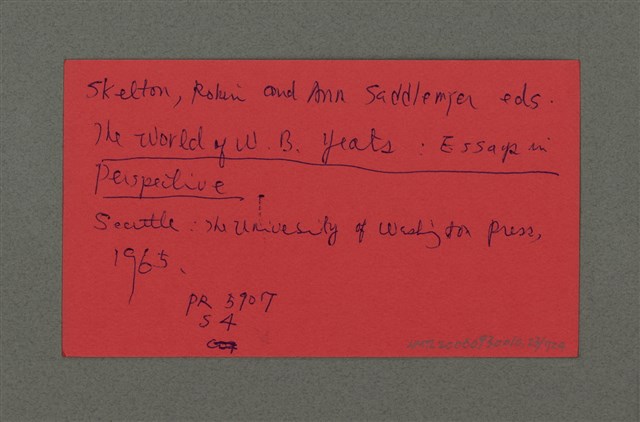 Skelton, Robin and Ann Saddlemyer eds.
The World of W. B. Yeats : Essays in
Perspective
Seattle : The University of Washington Press,
1965.
PR 5907
S 4